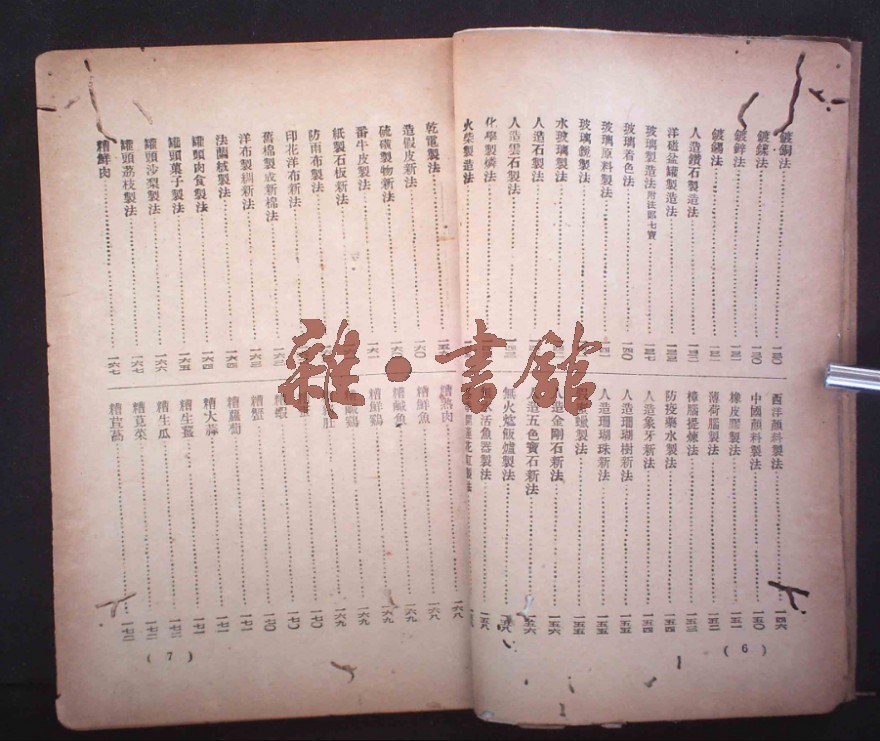 鍍銅法……一三〇
鍍鎳法……一三〇
鍍鋅法……一三一
鍍錫法……一三一
人造鑽石製造法……一三二
洋磁盆罐製造法……一三三
玻璃製造法附法郎七寶……一三七
玻璃着色法……一四〇
玻璃原料製法……一四一
玻璃鏡製法
水玻璃製法
人造石製法
人造雲石製法
化學製燐法
火柴製造法
西洋顏料製法……一四六
中國顏料製法……一五〇
橡皮膠製法……一五一
薄荷腦製法……一五二
樟腦提煉法……一五三
防疫藥水製法……一五四
人造象牙新法……一五四
人造珊瑚樹新法……一五五
人造珊瑚珠新法……一五五
蠟製法……一五五
人造金剛石新法……一五六
人造五色寶石新法……一五六
無火爐飯爐製法
活魚器製法……一五八
(6)
乾電製法
造假皮新法……一六〇
硫磺製物新法……一六〇
番牛皮製法……一六一
紙製石板新法
防雨布製法
印花洋布新法
舊棉製成新棉法……一六三
洋布製綢新法……一六三
法蘭絨製法……一六四
罐頭肉食製法……一六四
罐頭菓子製法……一六五
罐頭沙梨製法……一六六
罐頭荔枝製法……一六七
糟鮮肉……一六七
糟熟肉……一六八
糟鮮魚……一六八
糟鹹魚……一六九
糟鮮鷄……一六九
鷄……一六九
肚……一六九
糟蝦……一七〇
糟蟹……一七〇
糟蘿蔔……一七一
糟大蒜……一七一
糟生薑……一七一
糟生瓜……一七二
糟莧菜……一七二
糟萵苣……一七二
(7)
雜·書館